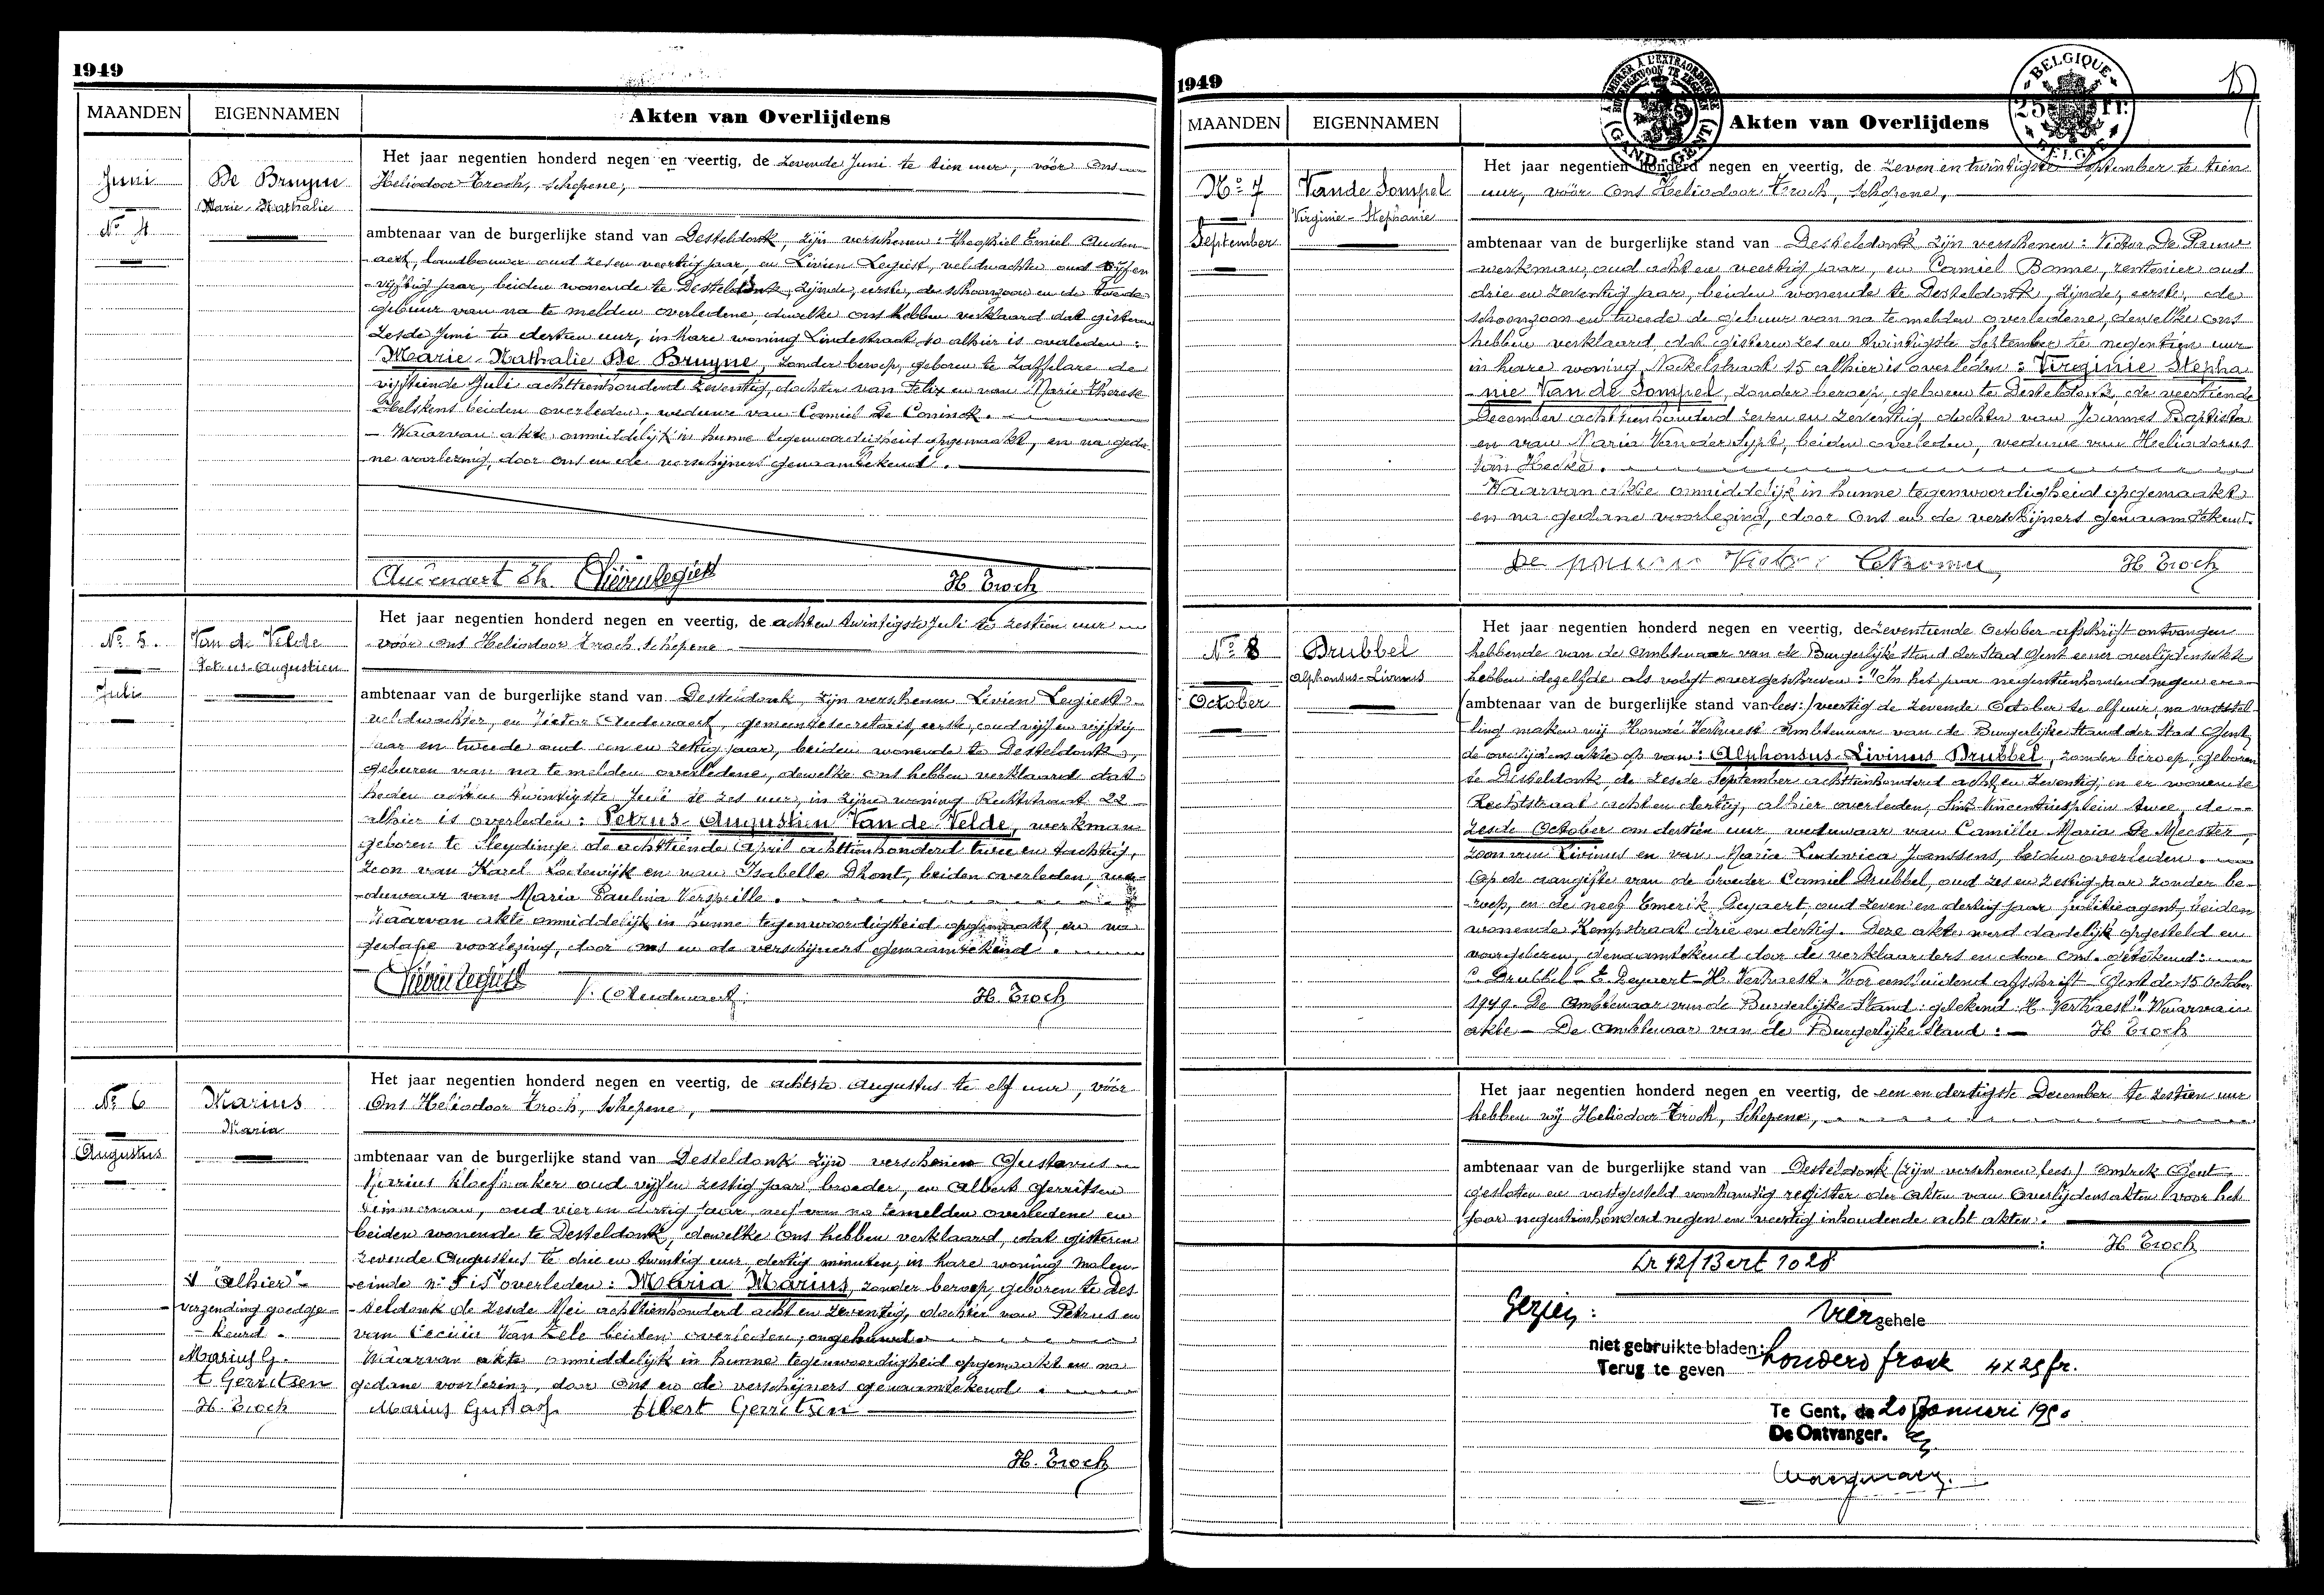 1949
MAANDEN EIGENNAMEN Akten van Overlijdens
Juni
No 4
De Bruyne
Marie-Nathalie
Het jaar negentien honderd negen en veertig, de zevende Juni te tien uur, vóór Ons
Heliodoor Troch, Schepene,
ambtenaar van de burgerlijke stand van Desteldonk, zijn verschenen: Theophiel Emiel Auden-
aert, landbouwer oud zes en veertig jaar, en Livien Legiest, veldwachter oud vijf en
vijftig jaar, beiden wonende te Desteldonk, zijnde, eerste, de schoonzoon en de tweede
gebuur van na te melden overledene, dewelke ons hebben verklaard dat gisteren
zesde Juni te dertien uur, in hare woning Lindestraat 10 alhier is overleden:
Marie-Nathalie De Bruyne, zonder beroep, geboren te Zaffelare de
vijftiende Juli achttienhonderd zeventig, dochter van Felix en van Marie Therese
beiden overleden, weduwe van Camiel De Coninck.
Waarvan akte onmiddelijk in hunne tegenwoordigheid opgemaakt, en na geda-
ne voorlezing, door ons en de verschijners genaamtekend.
Audenaert Th. Livien Legiest H. Troch
No 5.
Juli
Van de Velde
Petrus-Augustien
Het jaar negentien honderd negen en veertig, de acht en twintigste Juli te zestien uur
vóór ons Heliodoor Troch Schepene
ambtenaar van de burgerlijke stand van Desteldonk, zijn verschenen Livien Legiest
veldwachter, en Victor Audenaert, gemeentesecretaris, eerste, oud vijf en vijftig
jaar en tweede oud een en zestig jaar, beiden wonende te Desteldonk,
geburen van na te melden overledene, dewelke ons hebben verklaard dat
heden acht en twintigste Juli te zes uur, in zijne woning Rechtstraat 22
alhier is overleden: Petrus-Augustien Van de Velde, werkman
geboren te Sleydinge de achttiende April achttienhonderd twee en tachtig,
zoon van Karel Lodewijk en van Isabella Dhont, beiden overleden, we-
duwaar van Maria Paulina Verspille.
Waarvan akte onmiddelijk in hunne tegenwoordigheid opgemaakt en na
gedane voorlezing, door ons en de verschijners genaamtekend.
Livien Legiest V. Audenaert H. Troch
No 6
Augustus
Marius
Maria
Het jaar negentien honderd negen en veertig, de achtste Augustus te elf uur, vóór
Ons Heliodoor Troch, Schepene,
ambtenaar van de burgerlijke stand van Desteldonk zijn verschenen Gustavus
Marius kloefmaker oud vijf en zestig jaar, broeder, en Albert Gerritsen
timmerman, oud vier en dertig jaar, neef van na temelden overledene en
beiden wonende te Desteldonk, dewelke ons hebben verklaard, dat gisteren
zevende Augustus te drie en twintig uur, dertig minuten, in hare woning Molen-
einde nr is overleden: Maria Marius, zonder beroep, geboren te Des
teldonk de zesde Mei achttienhonderd acht en zeventig, dochter van Petrus en
van Cecilia Van Zele beiden overleden, ongehuwd.
Waarvan akte onmiddelijk in hunne tegenwoordigheid opgemaakt en na
gedane voorlezing, door ons en de verschijners genaamtekend.
"alhier"
verzending goedge-
keurd.
Marius G.
Gerritsen
H. Troch
Marius Gustaaf Albert Gerritsen
H. Troch
1949
BELGIQUE
25 fr.
BELGIE
GAND-GENT
MAANDEN EIGENNAMEN Akten van Overlijdens
No 7
September
Van de Sompel
Virginie-Stephanie
Het jaar negentien honderd negen en veertig, de zeven en twintigste September te tien
uur, vóór Ons Heliodoor Troch, Schepene,
ambtenaar van de burgerlijke stand van Desteldonk zijn verschenen: Victor De Pauw
werkman oud acht en veertig jaar, en Camiel Bonne, rentenier oud
drie en zeventig jaar, beiden wonende te Desteldonk, zijnde, eerste, de
schoonzoon en tweede de gebuur van na te melden overledene, dewelke ons
hebben verklaard, dat gisteren zes en twintigste September te negentien uur
in hare woning, 15 alhier is overleden: Virginie Stepha
nie Van de Sompel, zonder beroep, geboren te Desteldonk, de veertiende
December achttienhonderd zeven en zeventig, dochter van Joannes Baptista
en van Maria Van der Sypt, beiden overleden, weduwe van Heliodorus
Van Hecke.
Waarvan akte onmiddelijk in hunne tegenwoordigheid opgemaakt
en na gedane voorlezing, door Ons en de verschijners genaamtekend.
De pauw Victor H. Troch
No 8
October
Brubbel
Alphonsus-Livinus
Het jaar negentien honderd negen en veertig, de zeventiende October afschrift ontvangen
hebbende van de Ambtenaar van de Burgerlijke Stand der Stad Gent eener overlijdensakte
hebben dezelfde als volgt overgeschreven: "In het jaar negentienhonderd negen en
(ambtenaar van de burgerlijke stand van lees:) veertig de zevende October te elf uur, na vaststel-
ling maken wij Honoré Verhaest Ambtenaar van de Burgerlijke Stand der Stad Gent,
de overlijdensakte op van: Alphonsus-Livinus Brubbel, zonder beroep geboren
te Desteldonk, de zesde September achttienhonderd acht en zeventig, en er wonende
Rechtstraat acht en dertig, alhier overleden, Sint Vincentiusplein twee, de
zesde October om dertien uur, weduwaar van Camilla Maria De Meester,
zoon van Livinus en van Maria Ludovica Janssens, beiden overleden.
Op de aangifte van de broeder Camiel Brubbel, oud zes en zestig jaar zonder be-
roep, en de neef Emerik Deyaert, oud zeven en dertig jaar politieagent, beiden
wonende Kempstraat drie en dertig. Deze akte werd dadelijk opgesteld en
voorgelezen, genaamtekend door de verklaarders en door Ons. getekend:
C. Brubbel - E. Deyaert - H. Verhaest. Voor eensluidend afschrift Gent de 15 October
1949. De Ambtenaar van de Burgerlijke Stand: getekend: H. Verhaest". Waarvan
akte - De Ambtenaar van de Burgerlijke Stand: H Troch
Het jaar negentien honderd negen en veertig, de een en dertigste December te zestien uur
hebben wij Heliodoor Troch, Schepene,
ambtenaar van de burgerlijke stand van Desteldonk (zijn verschenen, lees:) Omtrek Gent
gesloten en vastgesteld voorhandig register der Akten van Overlijdensakten voor het
jaar negentienhonderd negen en veertig inhoudende acht akten.
H Troch
Gezien: vier gehele
niet gebruikte bladen:
Terug te geven honderd frank 4 x 25 fr.
Te Gent, de 20 Januari 1950
De Ontvanger.